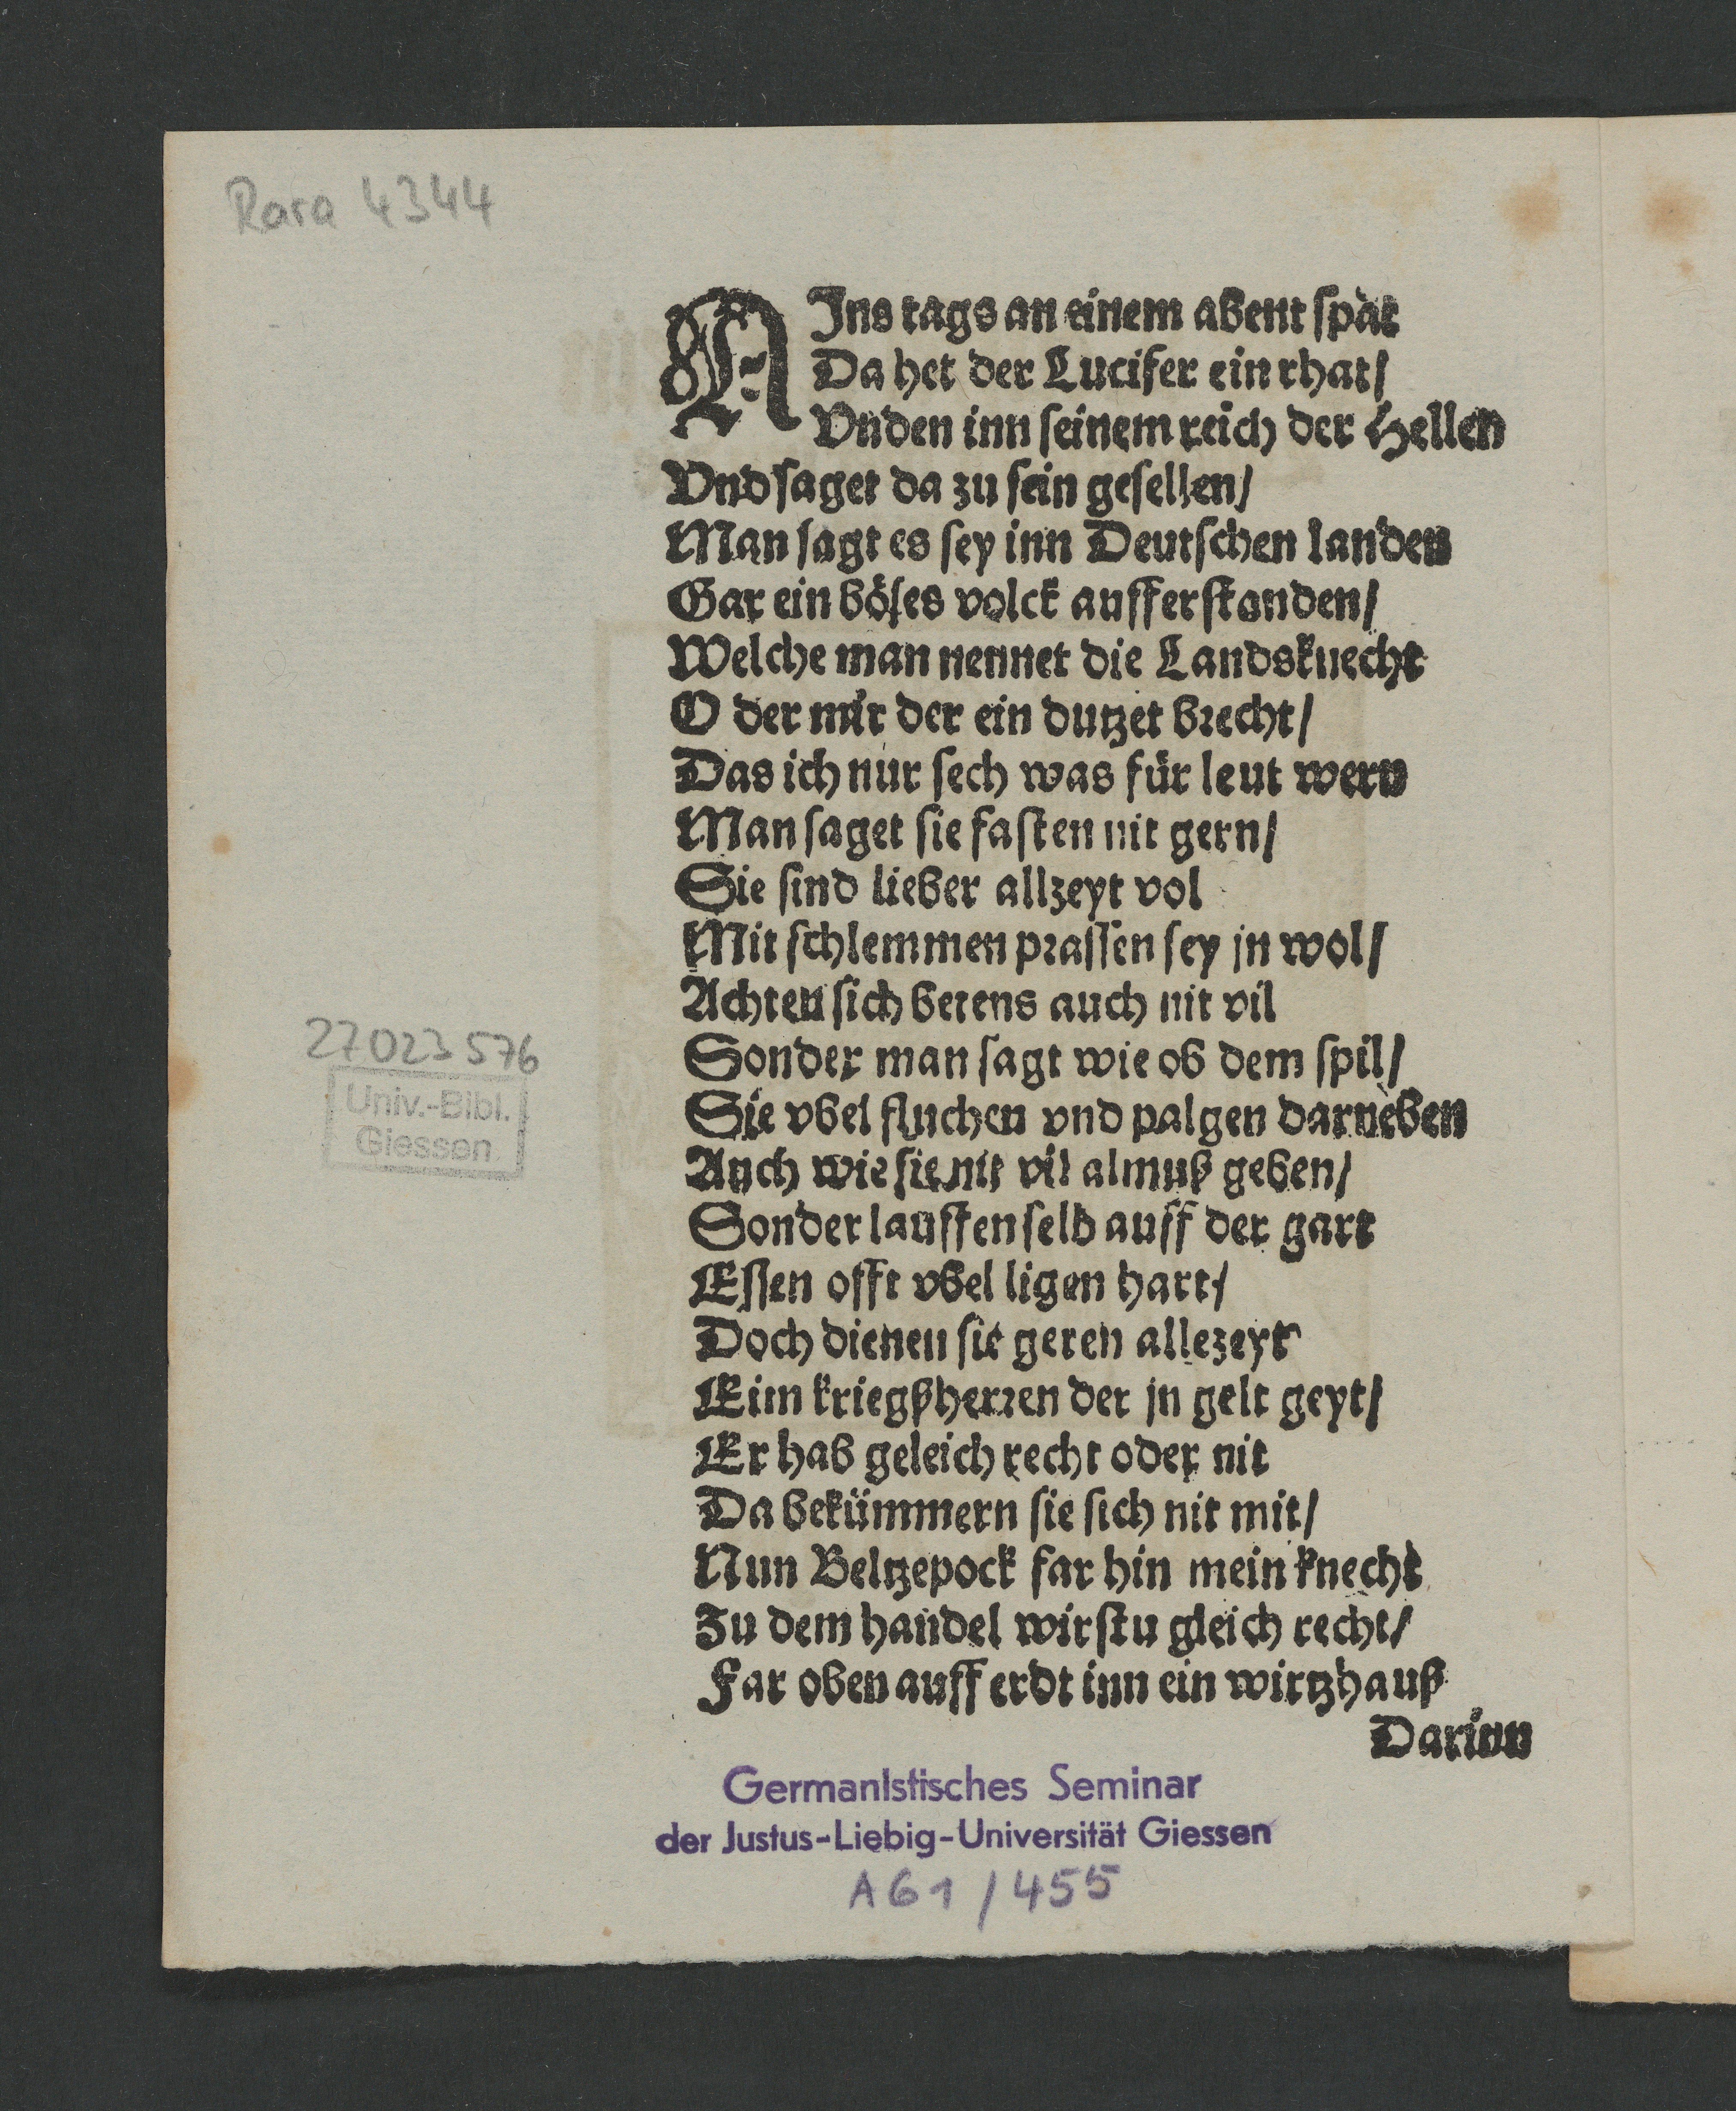 Rara 4344
AJns tags an einem abent spat
Da het der Lucifer ein rhat/
Vnden inn seinem reich der Hellen
Vnd saget da zu sein gesellen/
Man sagt es sey inn Deutschen landen
Gar ein böses volck aufferstanden/
Welche man nennet die Landsknecht
O der mir der ein dutzet brecht/
Das ich nur sech was für leut wern
Man saget sie fasten nit gern/
Sie sind lieber allzeyt vol
Mit schlemmen prassen sey jn wol/
Achten sich betens auch nit vil
Sonder man sagt wie ob dem spil/
Sie vbel fluchen vnd palgen darneben
Auch wie sie nit vil almuß geben/
Sonder lauffen selb auff der gart
Essen offt vbel ligen hart/
Doch dienen sie geren allezeyt
Eim kriegßherren der jn gelt geyt/
Er hab geleich recht oder nit
Da bekümmern sie sich nit mit/
Nun Beltzepock far hin mein knecht
Zu dem handel wirstu gleich recht/
Far oben auff erdt inn ein wirtzhauß
Darinn
27023576
Univ.-Bibl.
Giessen
Germanistisches Seminar
der Justus-Liebig-Universität Giessen
A61/455